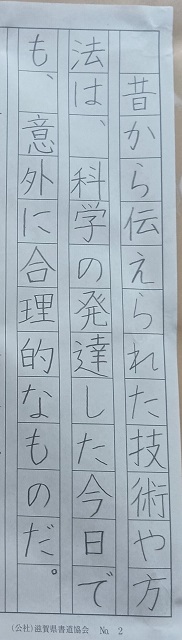 昔から伝えられた技術や方
法は、科学の発達した今日で
も、意外に合理的なものだ。
(公社)滋賀県書道協会 No. 2